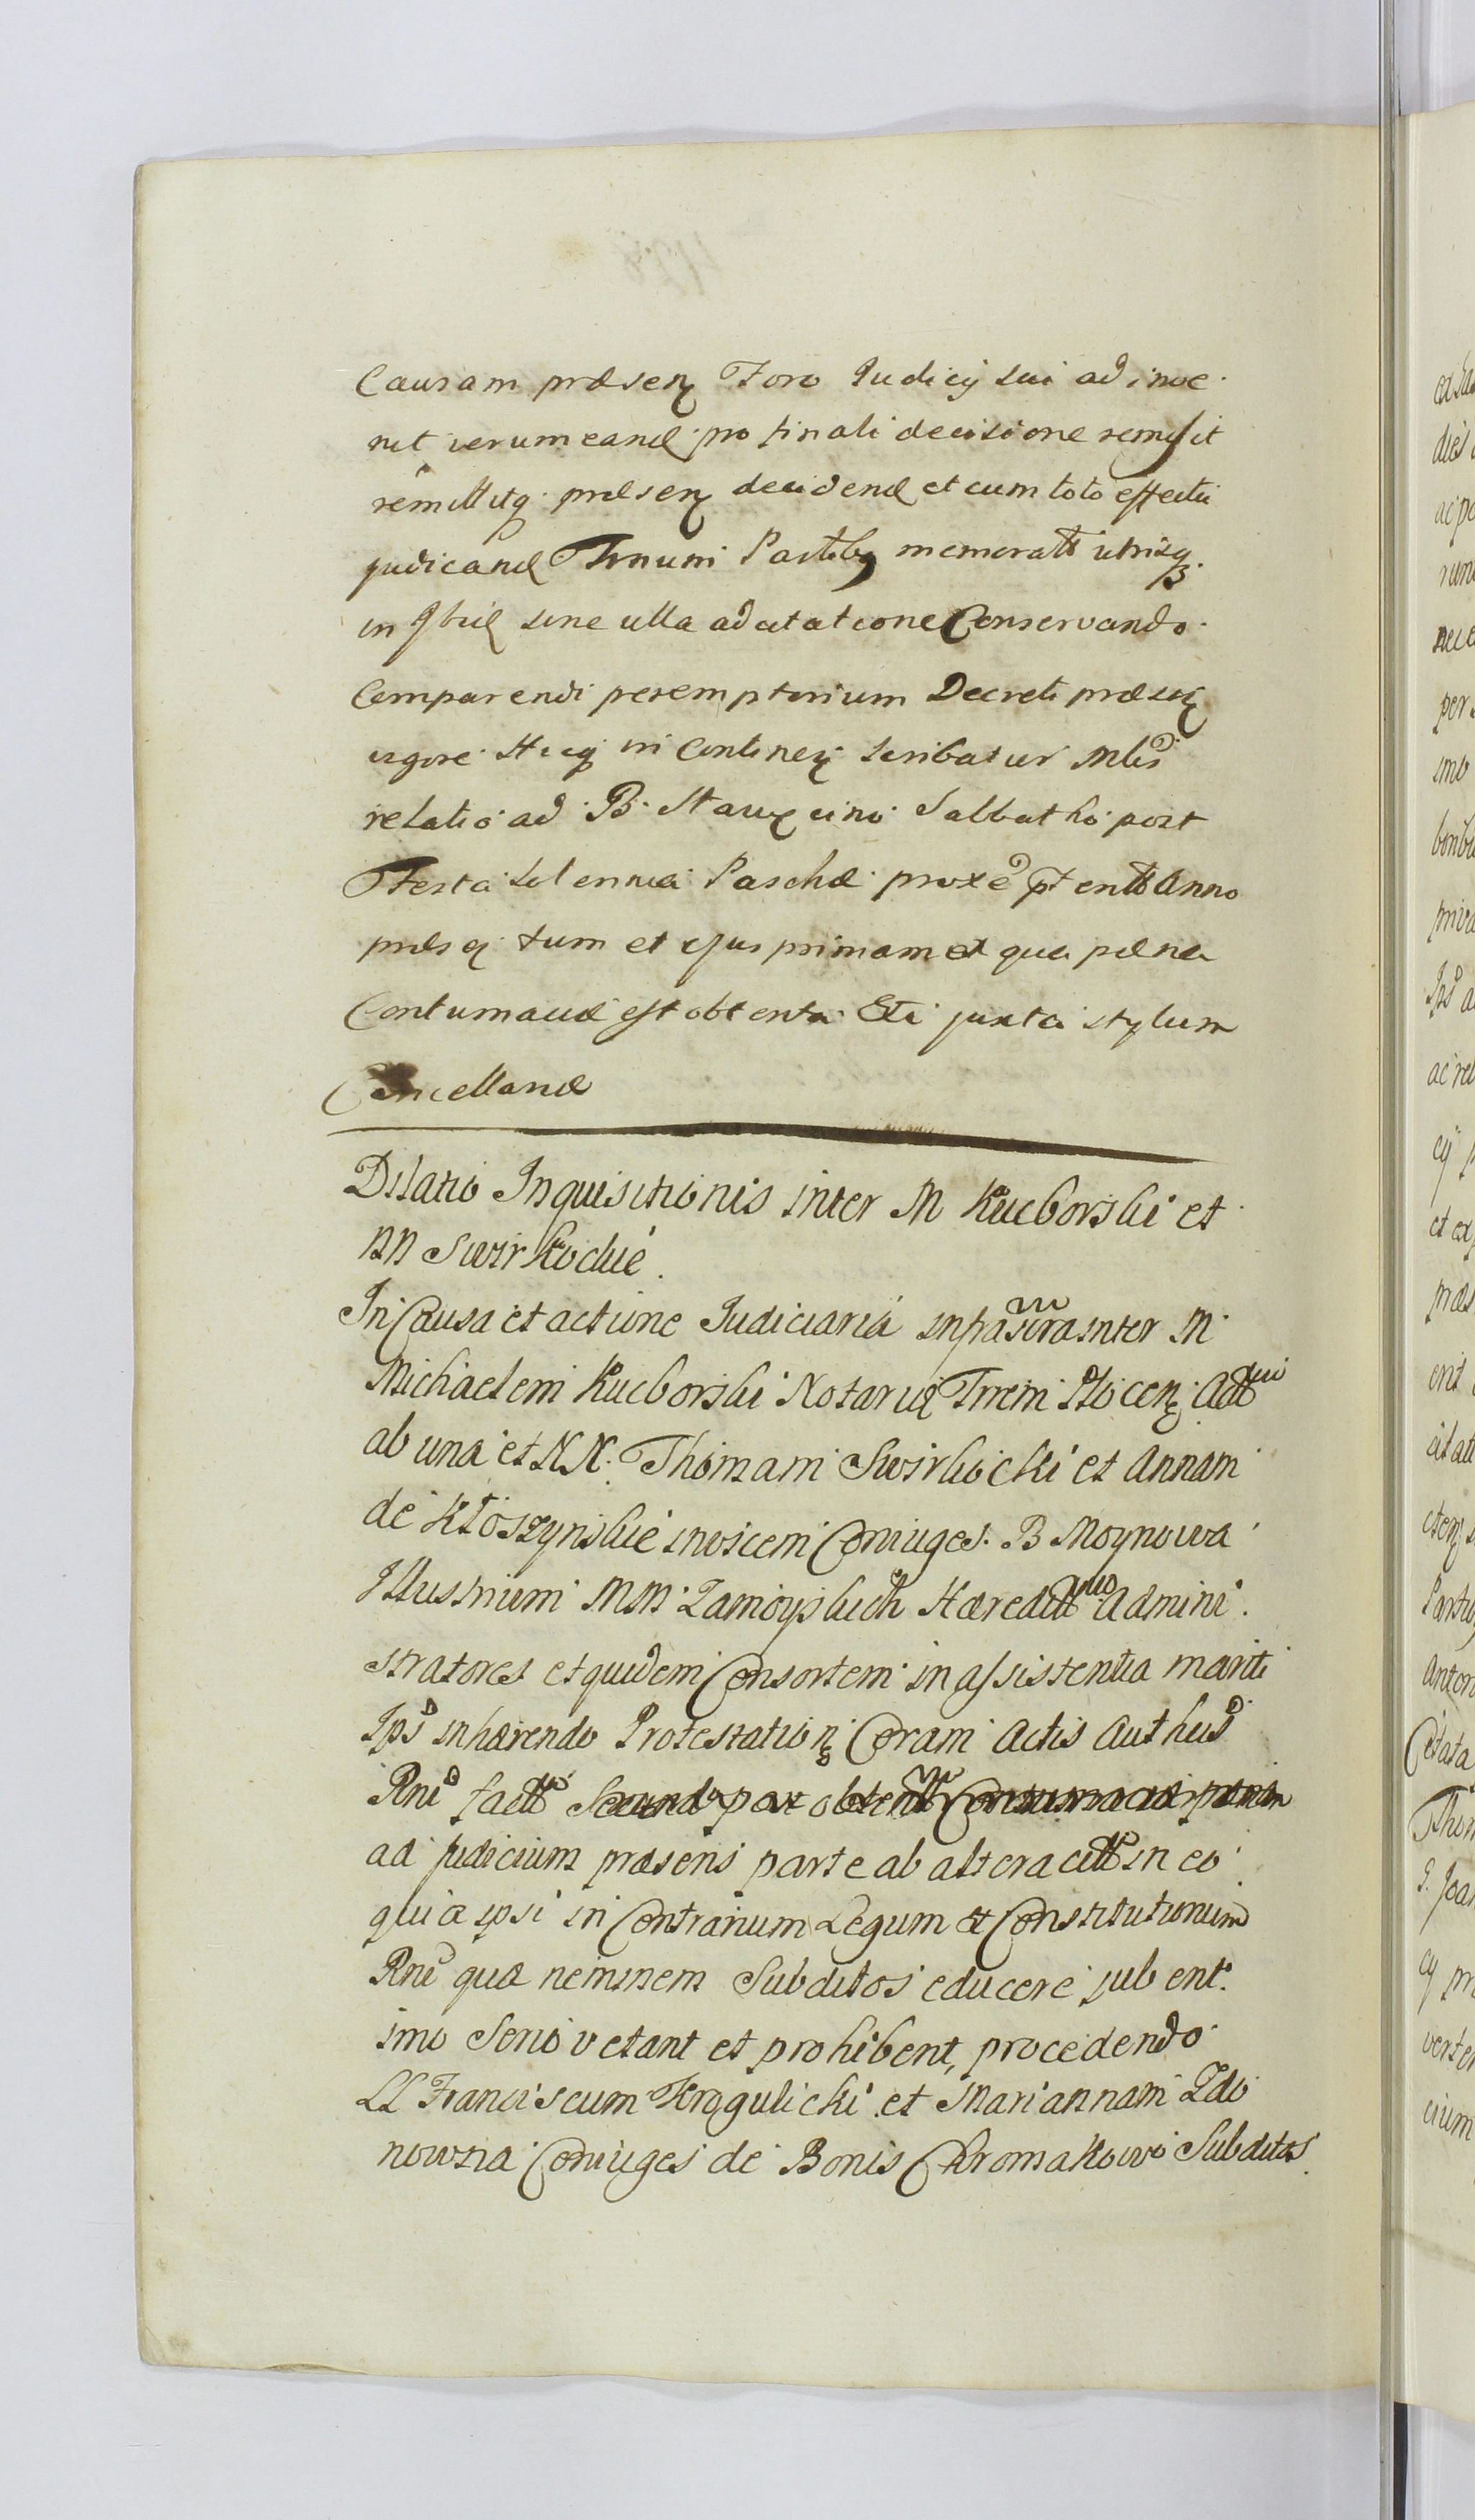 Causam præsenz Foro Iudicij sui adinve
nit verum eand pro finali decisione remisit
remittitq præsenz decidend et cum toto effectu
judicand Trnum Partibq memoratt utrisq
in Jbid sine ulla adcitatione Conservando
Comparendi peremptorium Decreti præsenz
vigore Hicq in Continenz scribatur Mlis
relatio ad B. Sabbatho post
Festa Solennia Paschæ proxe ptentt Anno
præsq tum et ejus primam et qua pæna
Contumaciæ est obtenta Eti juxta stylum
Cancellariæ
Dilatio Inquisitionis inter M Kucborski et
NN Swirkockie
In Causa et actione Iudiciaria inter M
Michaelem Kucborski Notariu Trrem Plocenz Actt
ab una et N.N. Thomam Swirkocki et Annam
de Kłoszynskie invicem Coniuges. B Moynowa
Illustrium MM Zamoyskich Hæreditt Admini
stratores et quidem Consortem in assistentia mariti
Ips inhærendo Protestationz Coram Actis Authus
Rni factt
ad judicium præsens parte ab altera citt in eo
quia ipsi in Contrarium Legum et Constitutionum
Rni quæ neminem Subditos educere jubent
imo Serio vetant et prohibent, procedendo
LL Franciscum Krogulicki et Mariannam Zdo
nowna Coniuges de Bonis Chromakowo Subditos